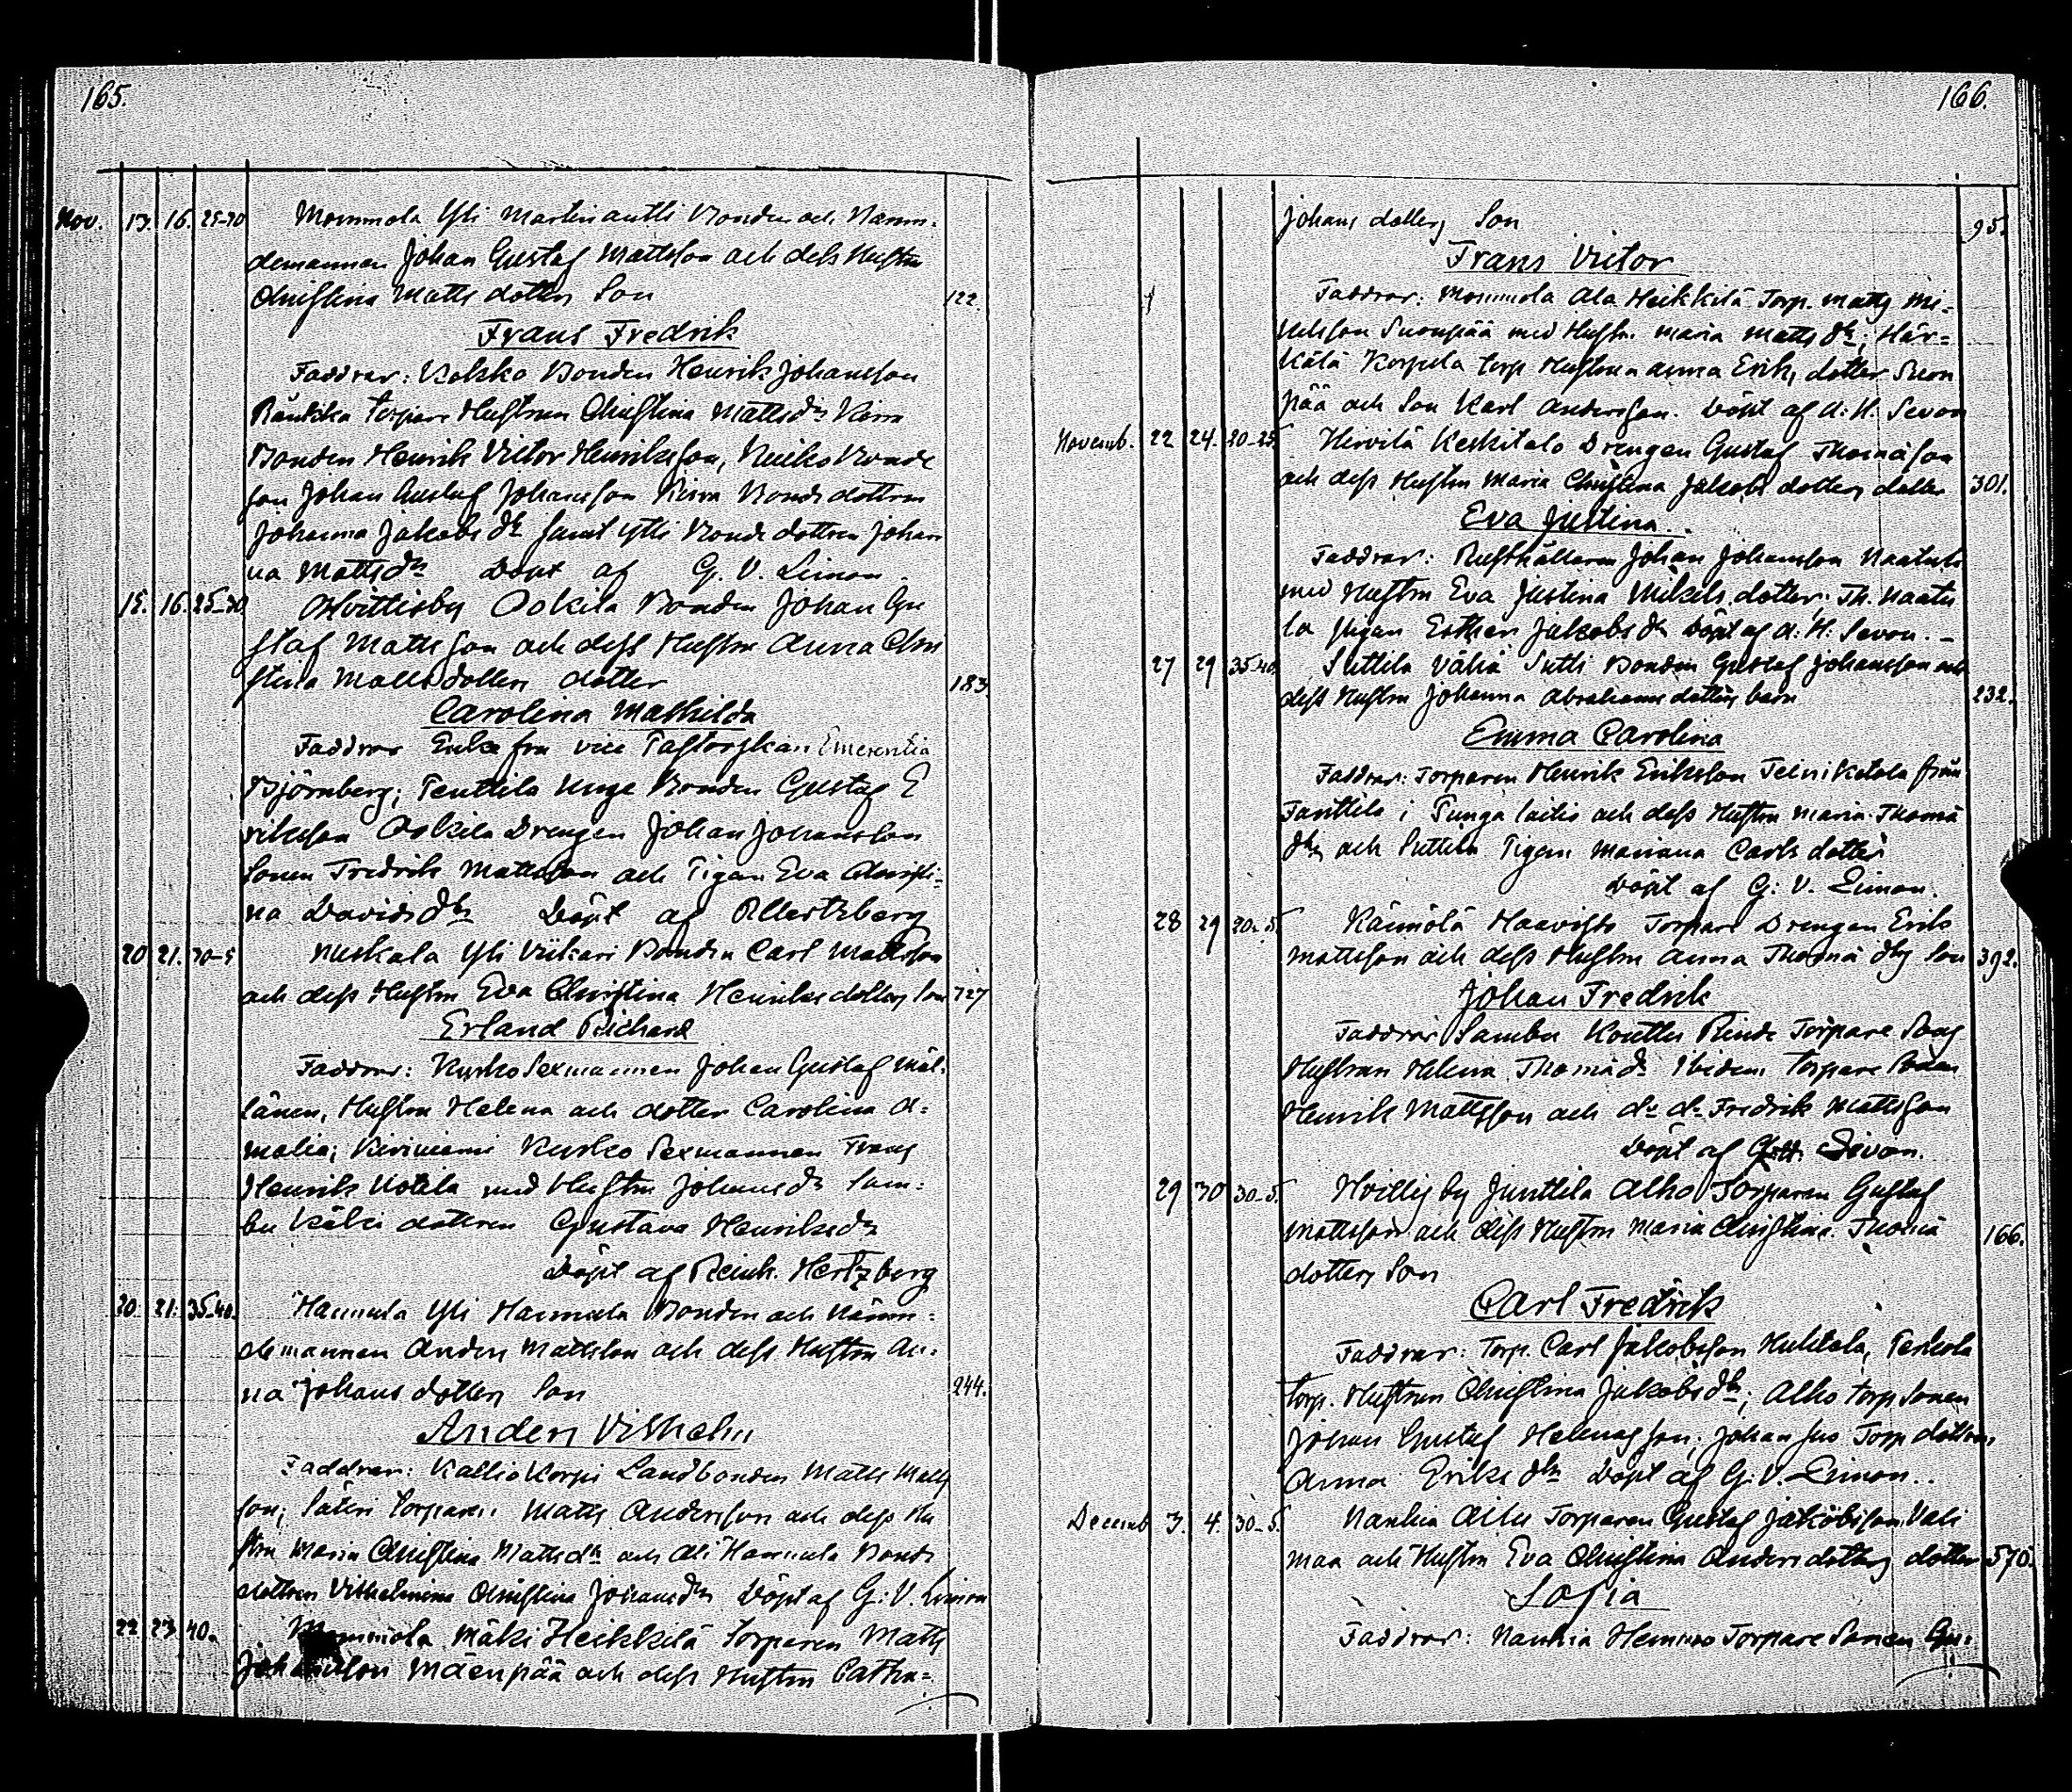 165.
Nov. 13. 16. 25-30 Mommola Yli Martin antti Bonden och Näm-
demannen Johan Gustaf Mattsson och dess Hustru
Christina Matts dotters Son 122.
Frans Fredrik
Faddrar: Kokko Bonden Henrik Johansson
Räntikä torpare Hustrun Christina Mattsdr
Bonden Henrik Victor Henriksson, Bonde
son Johan Gustaf Johansson Bonde dottren
Johanna Jakobs dr samt Ytti Bonde dottren Johan
na Mattsdr Döpt af G. V. Limon.
15. 16. 25-30 Hvittisby Oskila Bonden Johan Gu
staf Matts son och dess Hustru Anna Chri
stina Matts dotters dotter 183
Carolina Mathilda
Faddrar Enke fru vice Pastorskan Emerentia
Björnberg; Penttila Unge Bonden Gustaf E
riksson Oskila Drengen Johan Johansson
Sonen Fredrik Mattsson och Pigan Eva Christi-
na Davids dr Döpt af R Hertzberg
20 21. 30-5 Nuskala Yli Viikari Bonden Carl Mattsson
och dess Hustru Eva Christina Henriks dotters Son 727
Erland Richard
Faddrar: Kurko Sexmannen Johan Gustaf Mäl-
länen, Hustru Helena och dotter Carolina A-
malia; Kiviniemi Kurko Sexmannen Frans
Henrik Kotila med Hustru Johansdr Sam-
bu Käki dottren Gustava Henriksdr
Döpt af Reinh. Hertzberg
20. 21. 35-40. Hannula Yli Hannula Bonden och Näm-
demannen Anders Mattsson och dess Hustru An-
na Johans dotters Son 244.
Anders Vilhelm
Faddrar: Kallio Korpi Landbonden Matts Matts
son; Säteri Torparen Matts Andersson och dess Hu
stru Maria Christina Mattsdr och Ali Hannula Bonde
dottren Vilhelmina Christina Johansdr Döpt af G. V. Limon
22 23 40. Mommola Mäki Heikkilä Torparen Matts
Johansson Mäenpää och dess Hustru Catha-
166.
Johans dotters Son 95.
Frans Victor
Faddrar: Mommola Ala Heikkilä Torp. Matts Mi-
kelsson Suonpää med Hustru Maria Matts dr; Här-
kälä Korpela torp Hustrun Anna Eriks dotter Suon
pää och Son Karl Andersson. Döpt af A. H. Sevon
Novemb. 22 24. 20-25 Hirvilä Keskitalo Drengen Gustaf Thomasson
och dess Hustru Maria Christina Jakobs dotters dotter 301.
Eva Justina
Faddrar: Rusthållaren Johan Johansson Naatula
med Hustru Eva Justina Mikels dotter. Th. Naatu
la pigan Esther Jakobs dr Döpt af A. H. Sevon. -
27 29 35-40. Suttila Vähä Sutti Bonden Gustaf Johansson och
dess Hustru Johanna Abrahams dotters barn 232.
Emma Carolina
Faddrar: Torparen Henrik Eriksson från
Panttila i Punga laitio och dess Hustru Maria Thomä
dr och Suttila Pigan Mariana Carls dotter
Döpt af G. V. Limon.
28 29 30-5. Käimölä Haavisto Torpare Drengen Erik
Mattsson och dess Hustru Anna Thomä drs Son 392.
Johan Fredrik
Faddrar Sambu Torpare Sons
Hustrun Helena Thomädr Ibidem Torpare Sonen
Henrik Mattsson och do do Fredrik Mattsson
Döpt af Limon.
29 30 30-5. Hvittisby Junttila Alho Torparen Gustaf
Mattsson och dess Hustru Maria Christina Thomä 166.
dotters Son
Carl Fredrik
Faddrar: Torp. Carl Jakobsson Huhtala,
torp. Hustrun Christina Jakobs dr; Alho torp sonen
Johan Gustaf Helenas son; Johan Torp dottren
Anna Eriks dr Döpt af G. V. Limon.
Decemb 3. 4. 30-5. Nanhia Torparen Gustaf Jakobsson Vali
maa och Hustru Eva Christina Anders dotters dotter 570.
Sofia
Faddrar: Nanhia Torpare Sonen Gu-